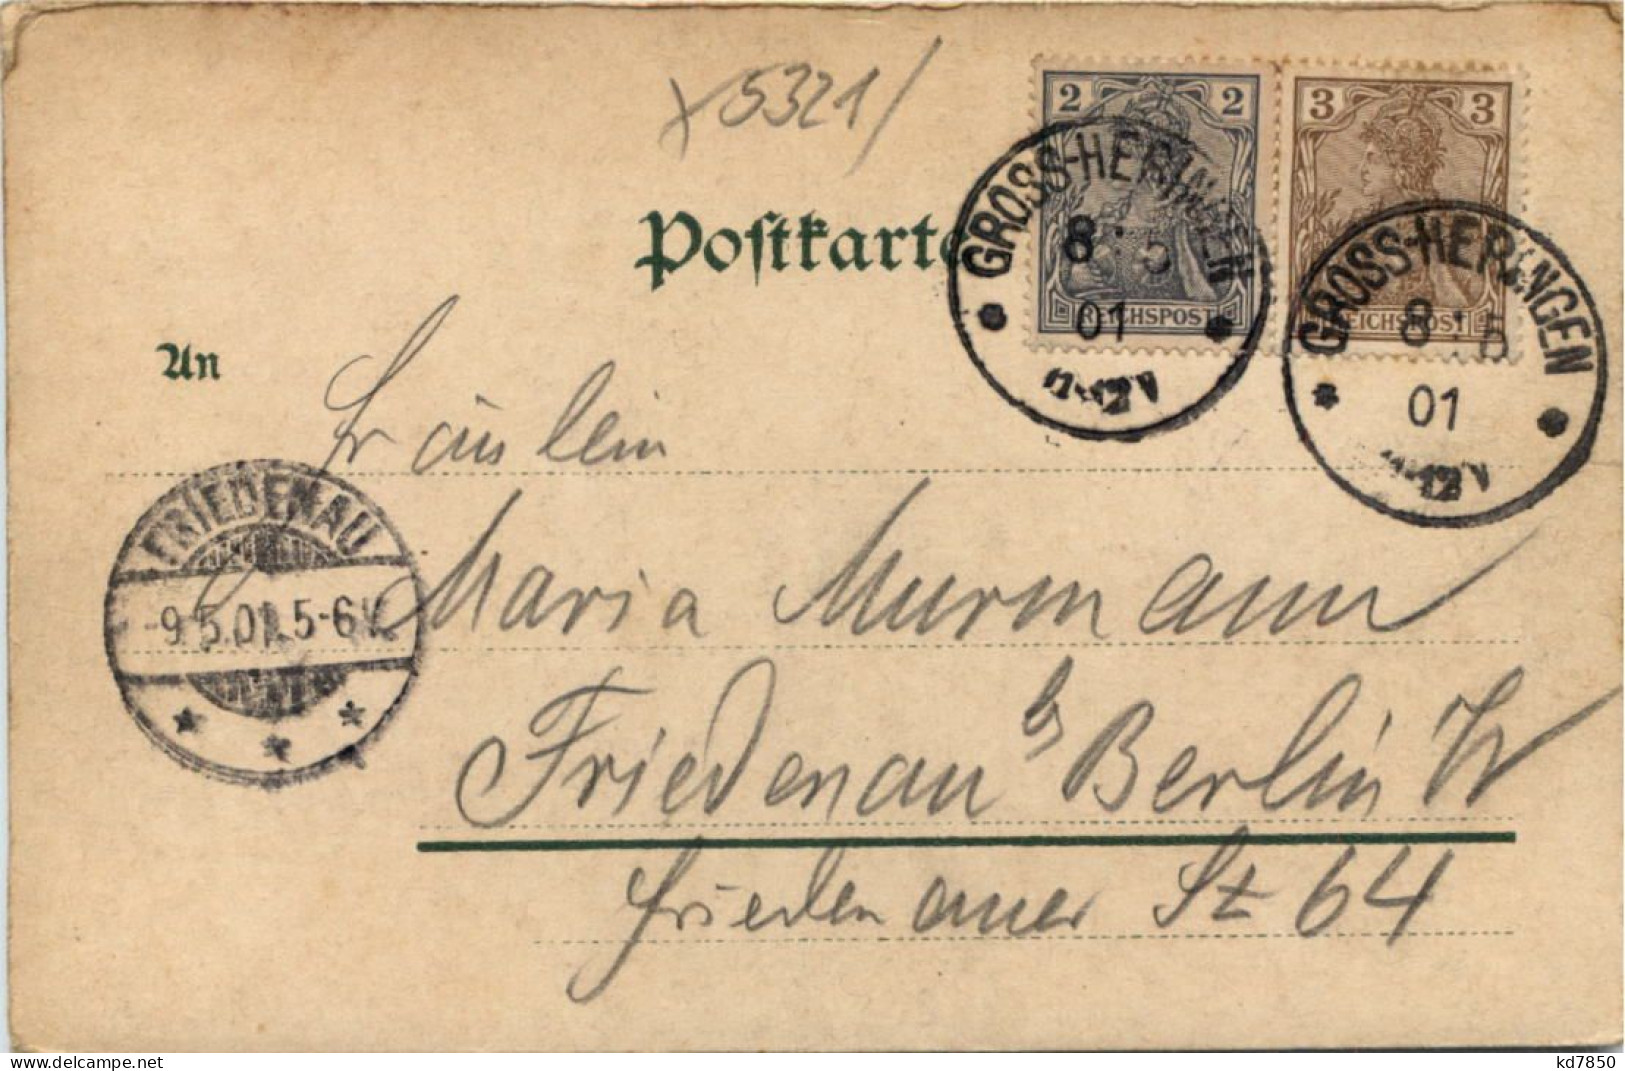 x5321/
2 2
3 3
REICHSPOST
REICHSPOST
GROSS-HERINGEN
8:5
01
11-12V
GROSS-HERINGEN
8:5
01
11-12V
Postkarte
An
Fräulein
FRIEDENAU
-9.5.01.5-6V.
Maria Murmann
Friedenau b/ Berlin W
Friedenauer St 64
www.delcampe.net
kd7850